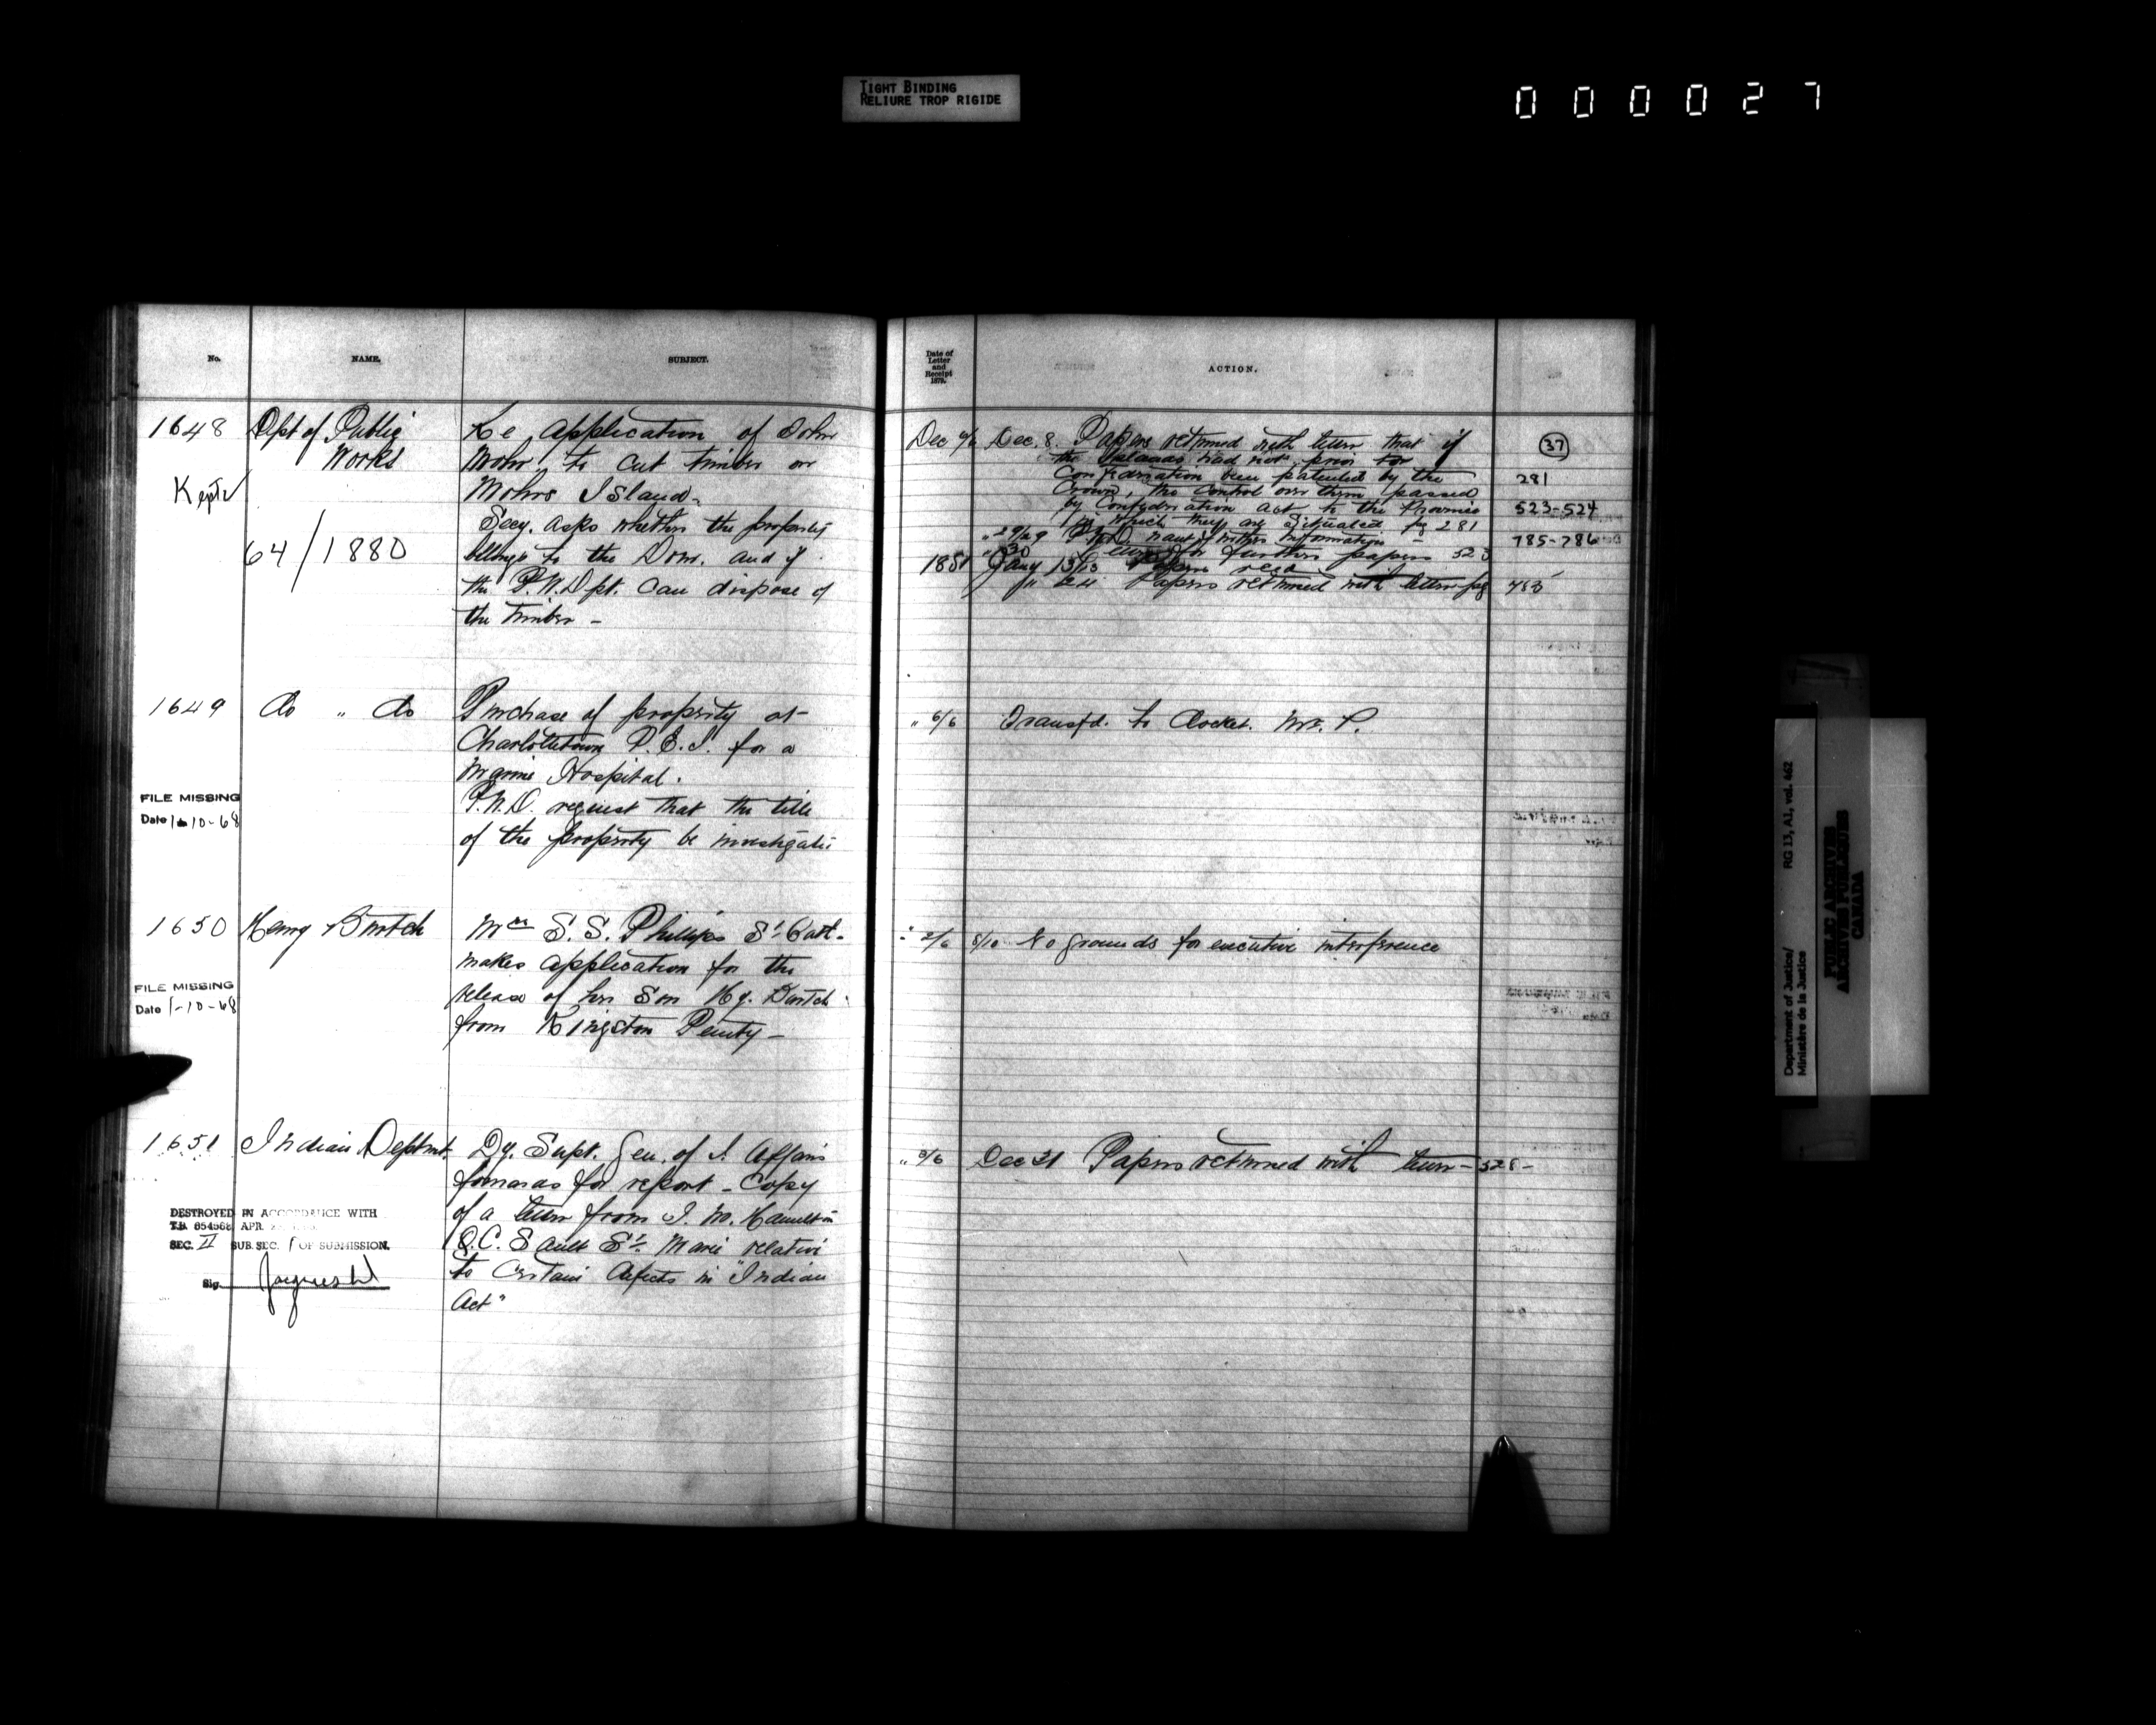 TIGHT BINDING
RELIURE TROP RIGIDE
000027
No.
NAME.
SUBJECT.
1648
Dept of Public
Works
Kept ✓
64/1880
Re application of John
Mohr to cut timber on
Mohrs Island -
Secy. asks whether the property
belongs to the Dom. and if
the P.W.Dpt. can dispose of
the timber -
1649
do " do
Purchase of property at
Charlottetown P.E.I. for a
Marine Hospital.
P.W.D. request that the title
of the property be investigated
FILE MISSING
Date 1-10-68
1650
Mrs S.S. Phillips St Cath.
makes application for the
release of her Son Hy.
from Kingston Penity -
FILE MISSING
Date 1-10-68
1651
Indian Deptmt.
Dy. Supt. Gen. of I. Affairs
forwards for report - Copy
of a letter from J. M. Hamilton
Q.C. Sault Ste Marie relative
to certain defects in "Indian
Act"
DESTROYED IN ACCORDANCE WITH
T.B. 654568 APR.
SEC. II SUB. SEC. 1 OF SUBMISSION.
Sig.
Date of
Letter
and
Receipt
1879.
ACTION.
37
Dec Dec. 8. Papers returned with letter that if
the Islands had not prior to
Confederation been patented by the
281
Crown, the control over them passed
by Confederation Act to the Province
523-524
in which they are situated pg 281
29/29 P.W.D. have further information -
785-786
" 30 Letter for further papers 523
1881 Jany 13/13 Papers recd
" 24 Papers returned with letter pg
" 6/6 Transfd. to Docket. Mr. P.
" 2/6 8/10 No grounds for executive interference
" 5/6 Dec 31 Papers returned with letter - 528 -
Department of Justice/
Ministère de la Justice
RG 13, A1, vol. 462
PUBLIC ARCHIVES
ARCHIVES PUBLIQUES
CANADA